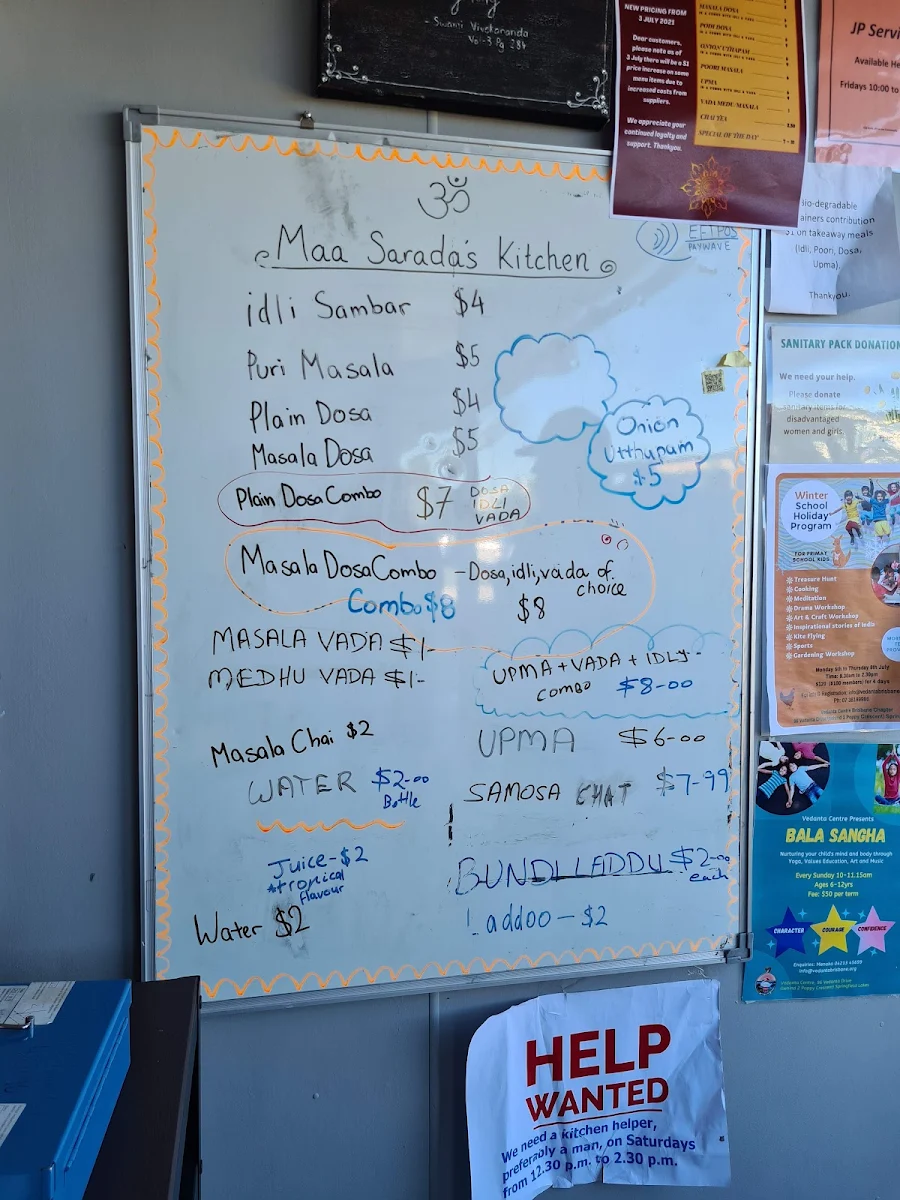 - Swami Vivekananda
Vol-3 Pg 284
NEW PRICING FROM
3 JULY 2021
Dear customers,
please note as of
3 July there will be a $1
price increase on some
menu items due to
increased costs from
suppliers.
We appreciate your
continued loyalty and
support. Thankyou.
MASALA DOSA
PODI DOSA
ONION UTHAPAM
POORI MASALA
UPMA
VADA MEDU/MASALA
CHAI TEA
SPECIAL OF THE DAY
JP Servi
Available He
Fridays 10:00 to
ॐ
Maa Sarada's Kitchen
EFTPOS
PAYWAVE
idli Sambar $4
Puri Masala $5
Plain Dosa $4
Masala Dosa $5
Onion
Utthupam
$5
Plain Dosa Combo $7 DOSA
IDLI
VADA
Masala Dosa Combo - Dosa, idli, vada of
choice
Combo $8 $8
MASALA VADA $1-
MEDHU VADA $1-
UPMA + VADA + IDLY -
COMBO $8-00
Masala Chai $2
UPMA $6-00
WATER $2-00
Bottle
SAMOSA CHAT $7-99
Juice - $2
tropical
flavour
BUNDI LADDU $2-00
each
Water $2
Laddoo - $2
io-degradable
ainers contribution
$1 on takeaway meals
(Idli, Poori, Dosa,
Upma).
Thankyou.
SANITARY PACK DONATION
We need your help.
Please donate
sanitary items for
disadvantaged
women and girls.
Winter
School
Holiday
Program
FOR PRIMARY
SCHOOL KIDS
Treasure Hunt
Cooking
Meditation
Drama Workshop
Art & Craft Workshop
Inspirational stories of India
Kite Flying
Sports
Gardening Workshop
Vedanta Centre Presents
BALA SANGHA
Nurturing your child's mind and body through
Yoga, Values Education, Art and Music
Every Sunday 10-11.15am
Ages 6-12yrs
Fee: $50 per term
CHARACTER
COURAGE
CONFIDENCE
HELP
WANTED
We need a kitchen helper,
preferably a man, on Saturdays
from 12.30 p.m. to 2.30 p.m.